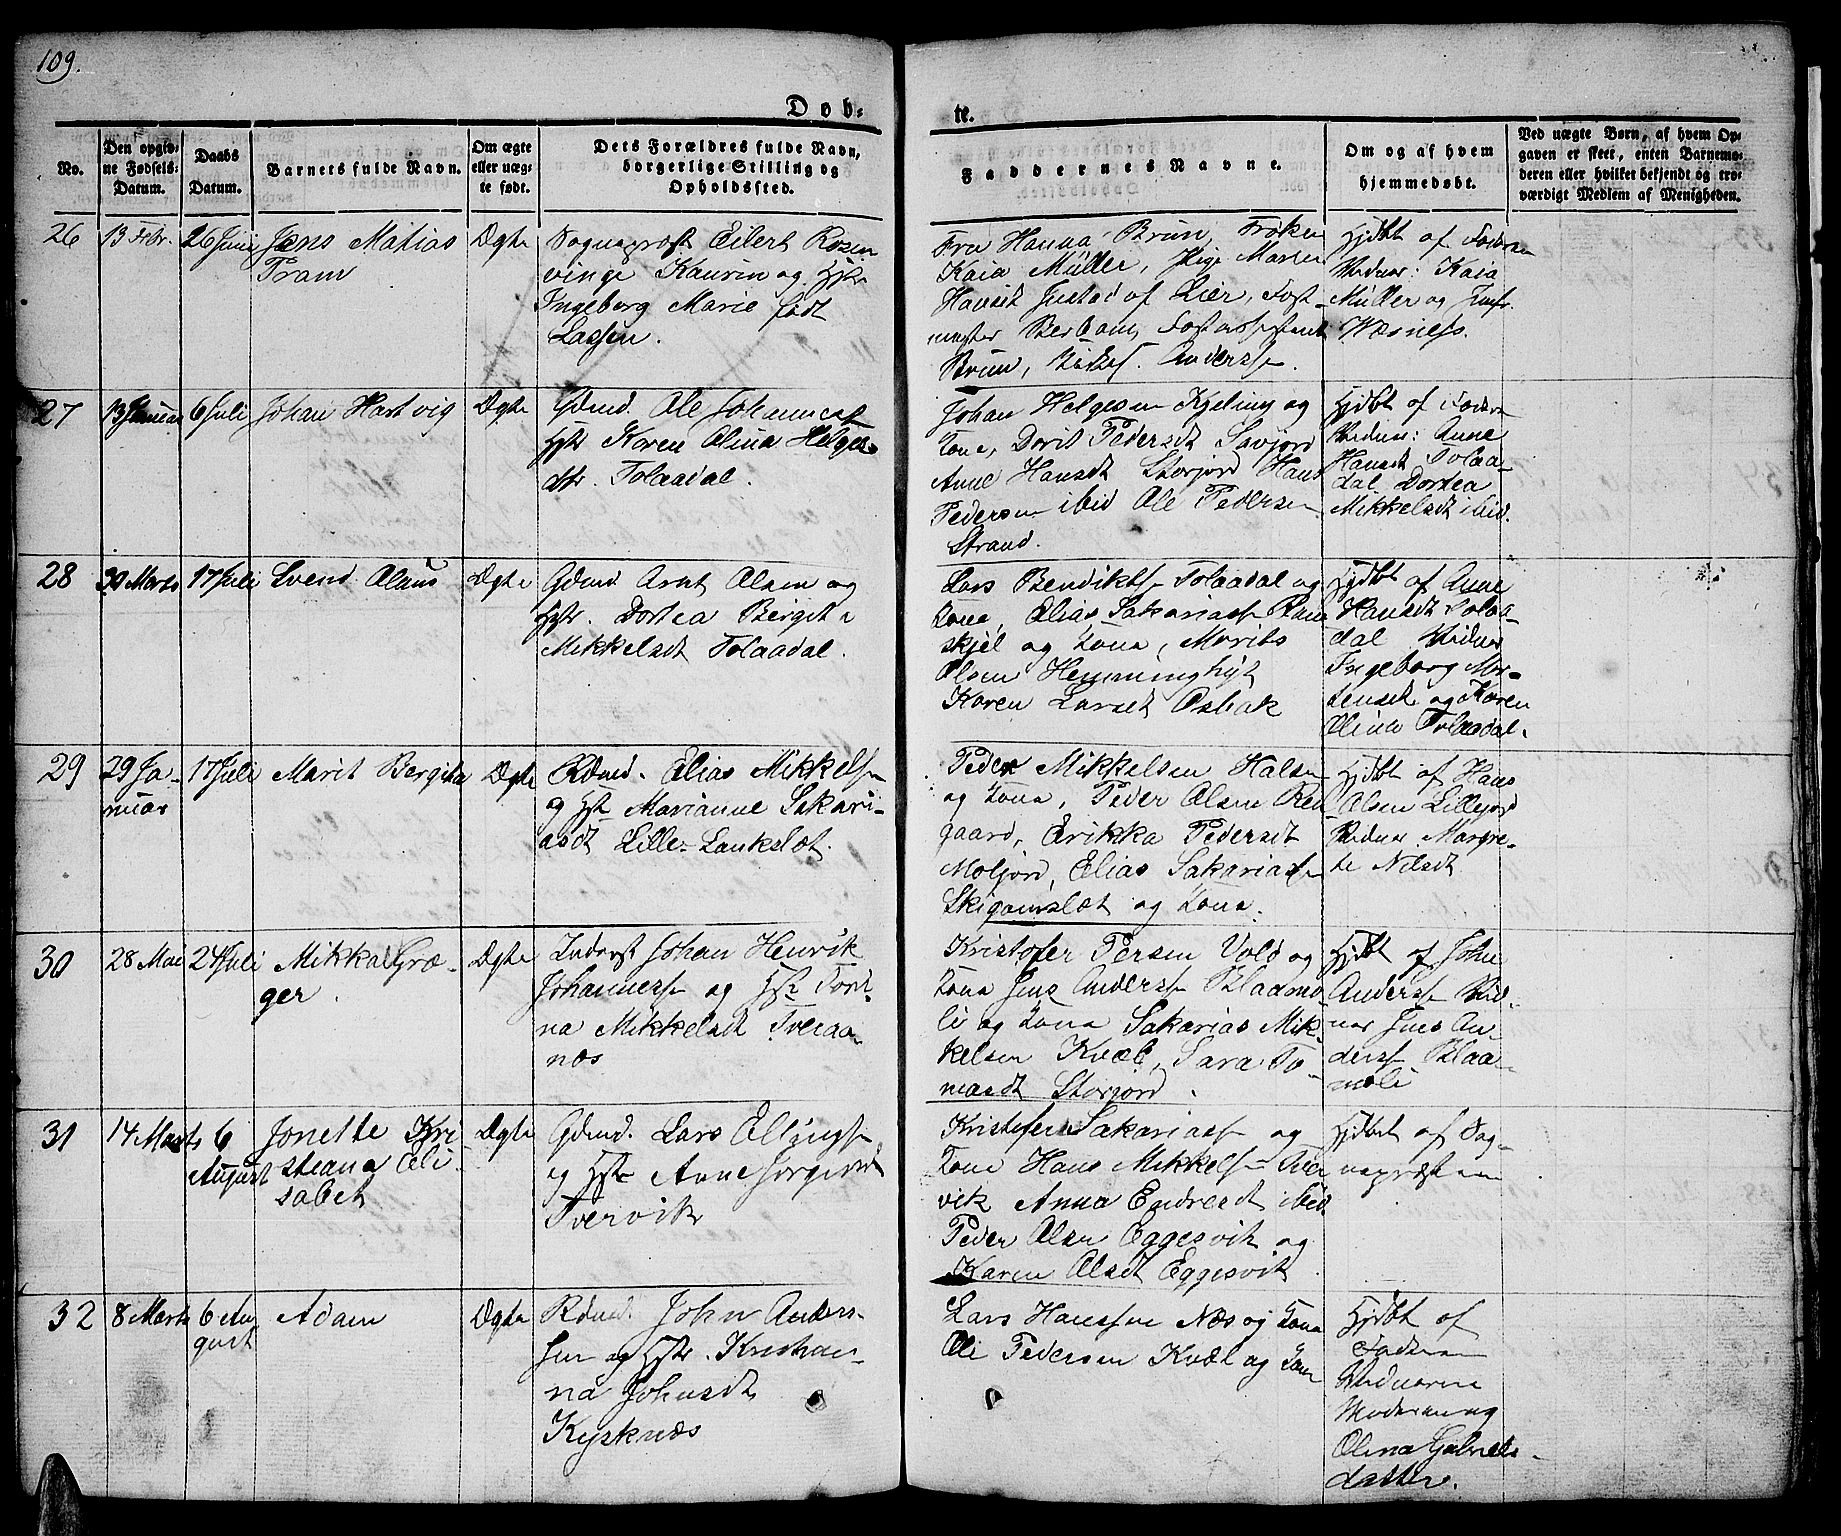 109.
Døb-
te.
No.
Den opgiv-
ne Fødsels-
Datum.
Daabs
Datum.
Barnets fulde Navn.
Om ægte
eller uæg-
te født.
Dets Forældres fulde Navn,
borgerlige Stilling og
Opholdssted.
Faddernes Navne.
Om og af hvem
hjemmedøbt.
Ved uægte Børn, af hvem Op-
gaven er skeet, enten Barnemo-
deren eller hvilket bekjendt og tro-
værdigt Medlem af Menigheden.
26
13 Febr.
26 Juni
Jens Matias
Pram
Ægte
Sognepræst Eilert Rosen
vinge Kaurin og Hst
Ingeborg Marie født
Lassen.
Fru Hanna Brun, Frøken
Kaia Müller, Pige Maren
Hansdt Justad af Lier, Post-
mester Brun,
Hjdbt af Faderen
Vidner: Kaia
Müller og Jmfr.
Wærness.
27
13 Januar
6 Juli
Johan Hartvig
Ægte
Gdmd. Ole Johannesen
Hstr Karen Olina Helges
dtr. Tolaadal.
Johan Helgesen Kjeling og
Kone, Dorit Pedersdt Savjord
Anne Hansdt Storjord Hans
Pedersen ibid Ole Pedersen
Strand.
Hjdbt af Faderen
Vidner: Anne
Hansdt Tolaa-
dal Dortea
Mikkelsdt ibid.
28
30 Marts
17 Juli
Svend Olaus
Ægte
Gdmd Arnt Olsen og
Hstr. Dortea Bergite
Mikkelsdt Tolaadal.
Lars Bendiktsn Tolaadal og
Kone, Elias Sakariassn Ram
skjel og Kone, Morits
Olsen Hemminghyt
Karen Larsdt Osbak
Hjdbt af Anne
Hansdt Tolaa-
dal Vidner
Ingeborg Mor-
tensdt og Karen
Olina Tolaadal.
29
29 Ja-
nuar
17 Juli
Marit Bergitta
Ægte
Rdmd. Elias Mikkelsn
og Hst Marianne Sakari-
asdt Lille-Lankslet.
Peder Mikkelsen Halsen
og Kone, Peder Olsen Ren
gaard, Erikka Pedersdt
Moljord, Elias Sakariassn
Skigamslet og Kone.
Hjdbt af Hans
Olsen Lillejord
Vidner Margre-
te Nilsdt
30
28 Mai
24 Juli
Mikkal Græ-
ger.
Ægte
Inderst Johan Henrik
Johannessn og Hst
na Mikkelsdt Tveraa-
næs
Kristofer Persen Vold og
Kone Jens Anderssn Blaamo
li og Kone Sakarias Mik-
kelsen Kvæl, Sara To-
masdt Storjord.
Hjdbt af John
Anderssn Vid-
ner Jens An
derssn Blaa-
moli
31
14 Marts
6
August
Jonette Kri
stiana Eli-
sabet
Ægte
Gdmd. Lars Ellingsn
og Hst Anne
Tvervik
Kristofer Sakariassn og
Kone Hans Mikkelsn Tver
vik Anna Endresdt ibid.
Peder Olsen Eggesvik og
Karen Olsdt Eggesvik
Hjdbt af Sog-
nepræsten
32
8 Marts
6 Au
gust
Adam
Ægte
Rdmd. John Anders-
sen og Hstr. Kristian-
na Johnsdt
Kysknæs
Lars Hanssen Næs og Kone
Ole Pedersen Kvæl og Kone
Hjdbt af
Faderen
Vidnerne
Moderen og
Olena Gabriels-
datter.